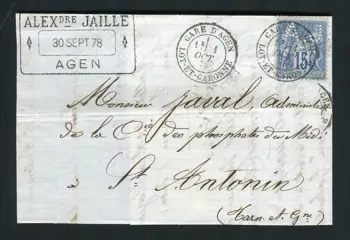 ALEXDRE JAILLE
30 SEPT 78
AGEN
GARE D'AGEN
1
OCT
LOT-ET-GARONNE
15
Monsieur Javal, Administr
de la Cie des phosphates du Midi
à
St Antonin
(Tarn et Gne)